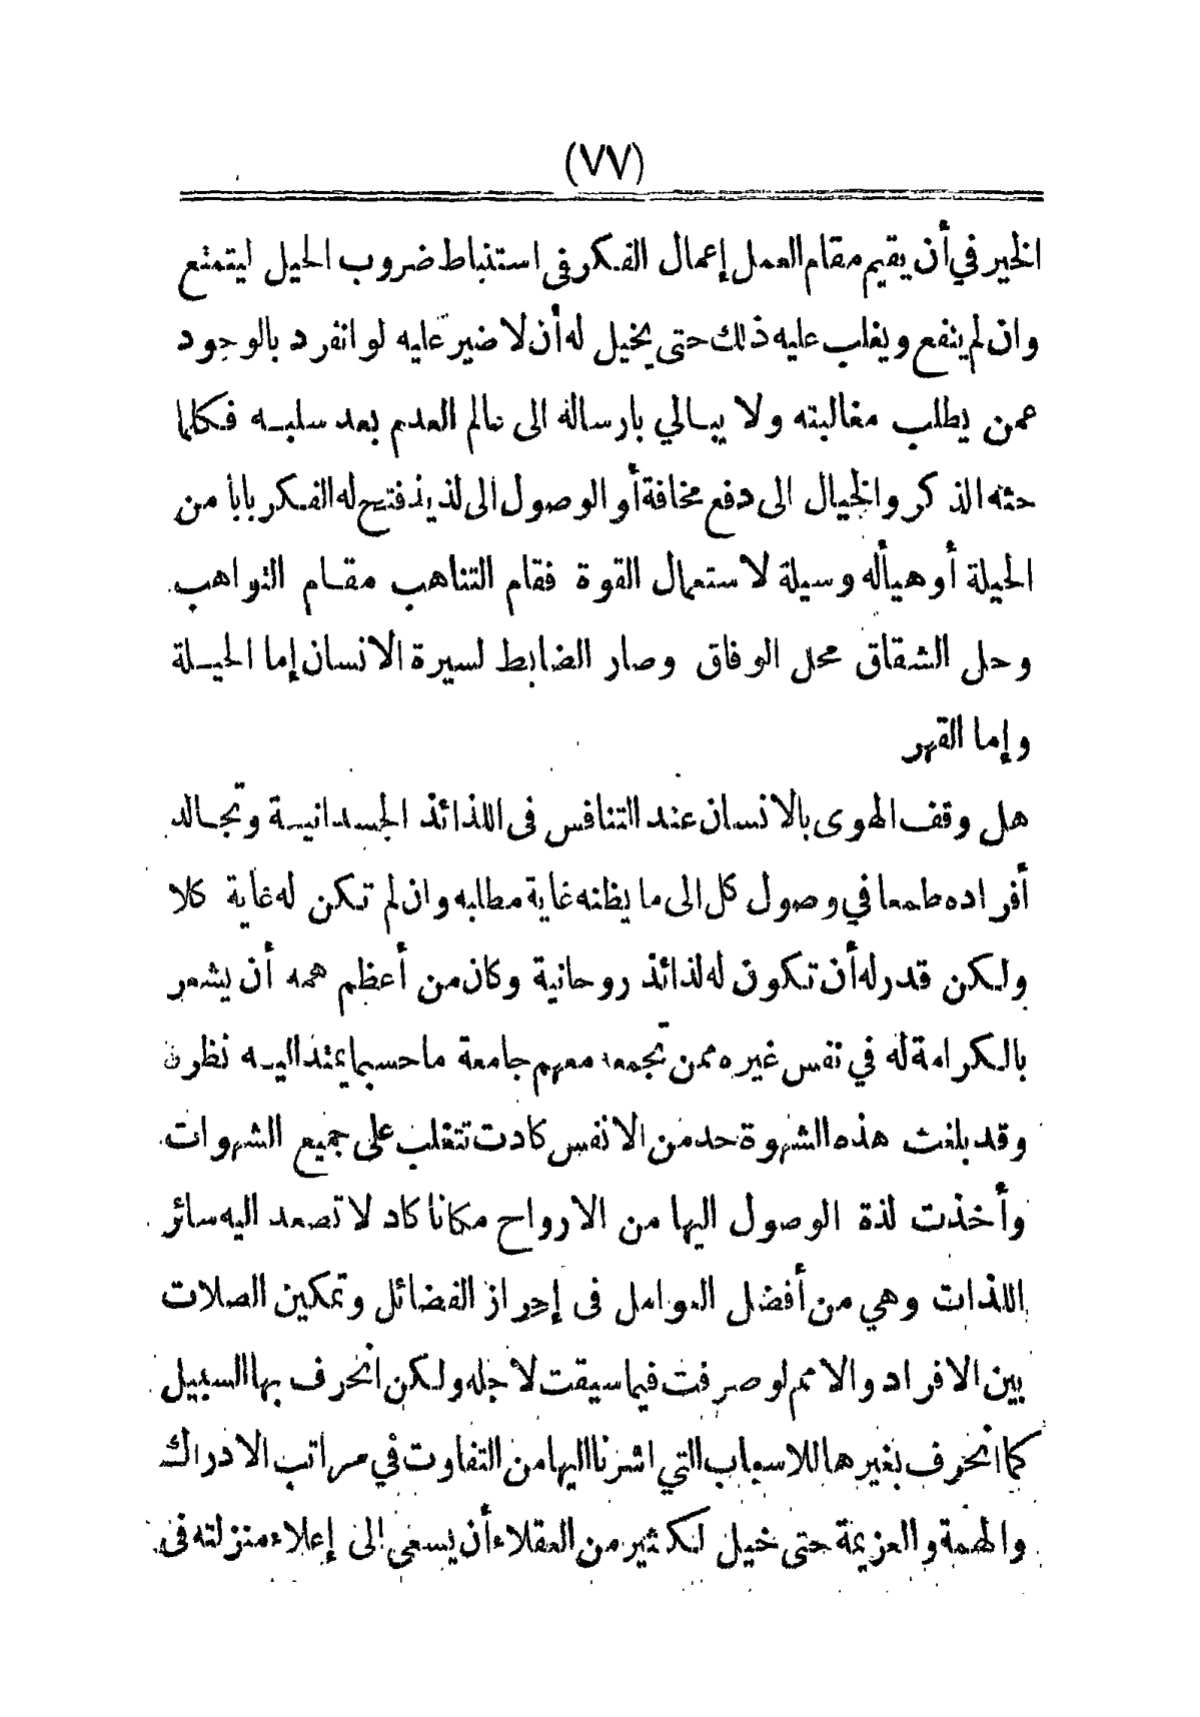 (٧٧)
الخير في أن يقيم مقام العمل إعمال الفكر فى استنباط ضروب الحيل ليتمتع
وان لم ينفع ويغلب عليه ذلك حتى يخيل له أن لا ضير عليه لو انفرد بالوجود
عمن يطلب مغالبته ولا يبالي بارساله الى عالم العدم بعد سلبه فكلما
حثه الذكر والخيال الى دفع مخافة أو الوصول الى لذيذ فتح له الفكر بابا من
الحيلة أو هيأ له وسيلة لاستعمال القوة فقام التناهب مقام التواهب
وحل الشقاق محل الوفاق وصار الضابط لسيرة الانسان إما الحيلة
وإما القهر
هل وقف الهوى بالانسان عند التنافس فى اللذائذ الجسدانية وتجالد
أفراده طمعا في وصول كل الى ما يظنه غاية مطلبه وان لم تكن له غاية كلا
ولكن قدر له أن تكون له لذائذ روحانية وكان من أعظم همه أن يشعر
بالكرامة له في نفس غيره ممن تجمعه معهم جامعة ما حسبما يمتد اليه نظره
وقد بلغت هذه الشهوة حد من الانفس كادت تتغلب على جميع الشهوات
وأخذت لذة الوصول اليها من الارواح مكانا كاد لا تصعد اليه سائر
اللذات وهي من أفضل العوامل فى إحراز الفضائل وتمكين الصلات
بين الافراد والامم لو صرفت فيما سيقت لاجله ولكن انحرف بها السبيل
كما انحرف بغيرها للاسباب التي اشرنا اليها من التفاوت في مراتب الادراك
والهمة والعزيمة حتى خيل لكثير من العقلاء أن يسعى الى إعلاء منزلته فى